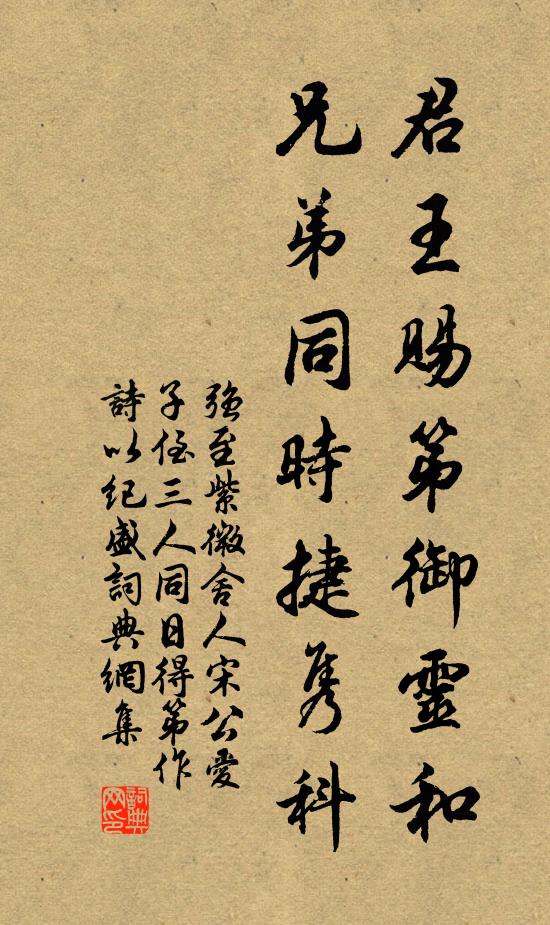 君王賜第御靈和
兄弟同時捷隽科
強至紫微舍人宋公愛
子侄三人同日得第作
詩以紀盛詞典網集
詞典网印